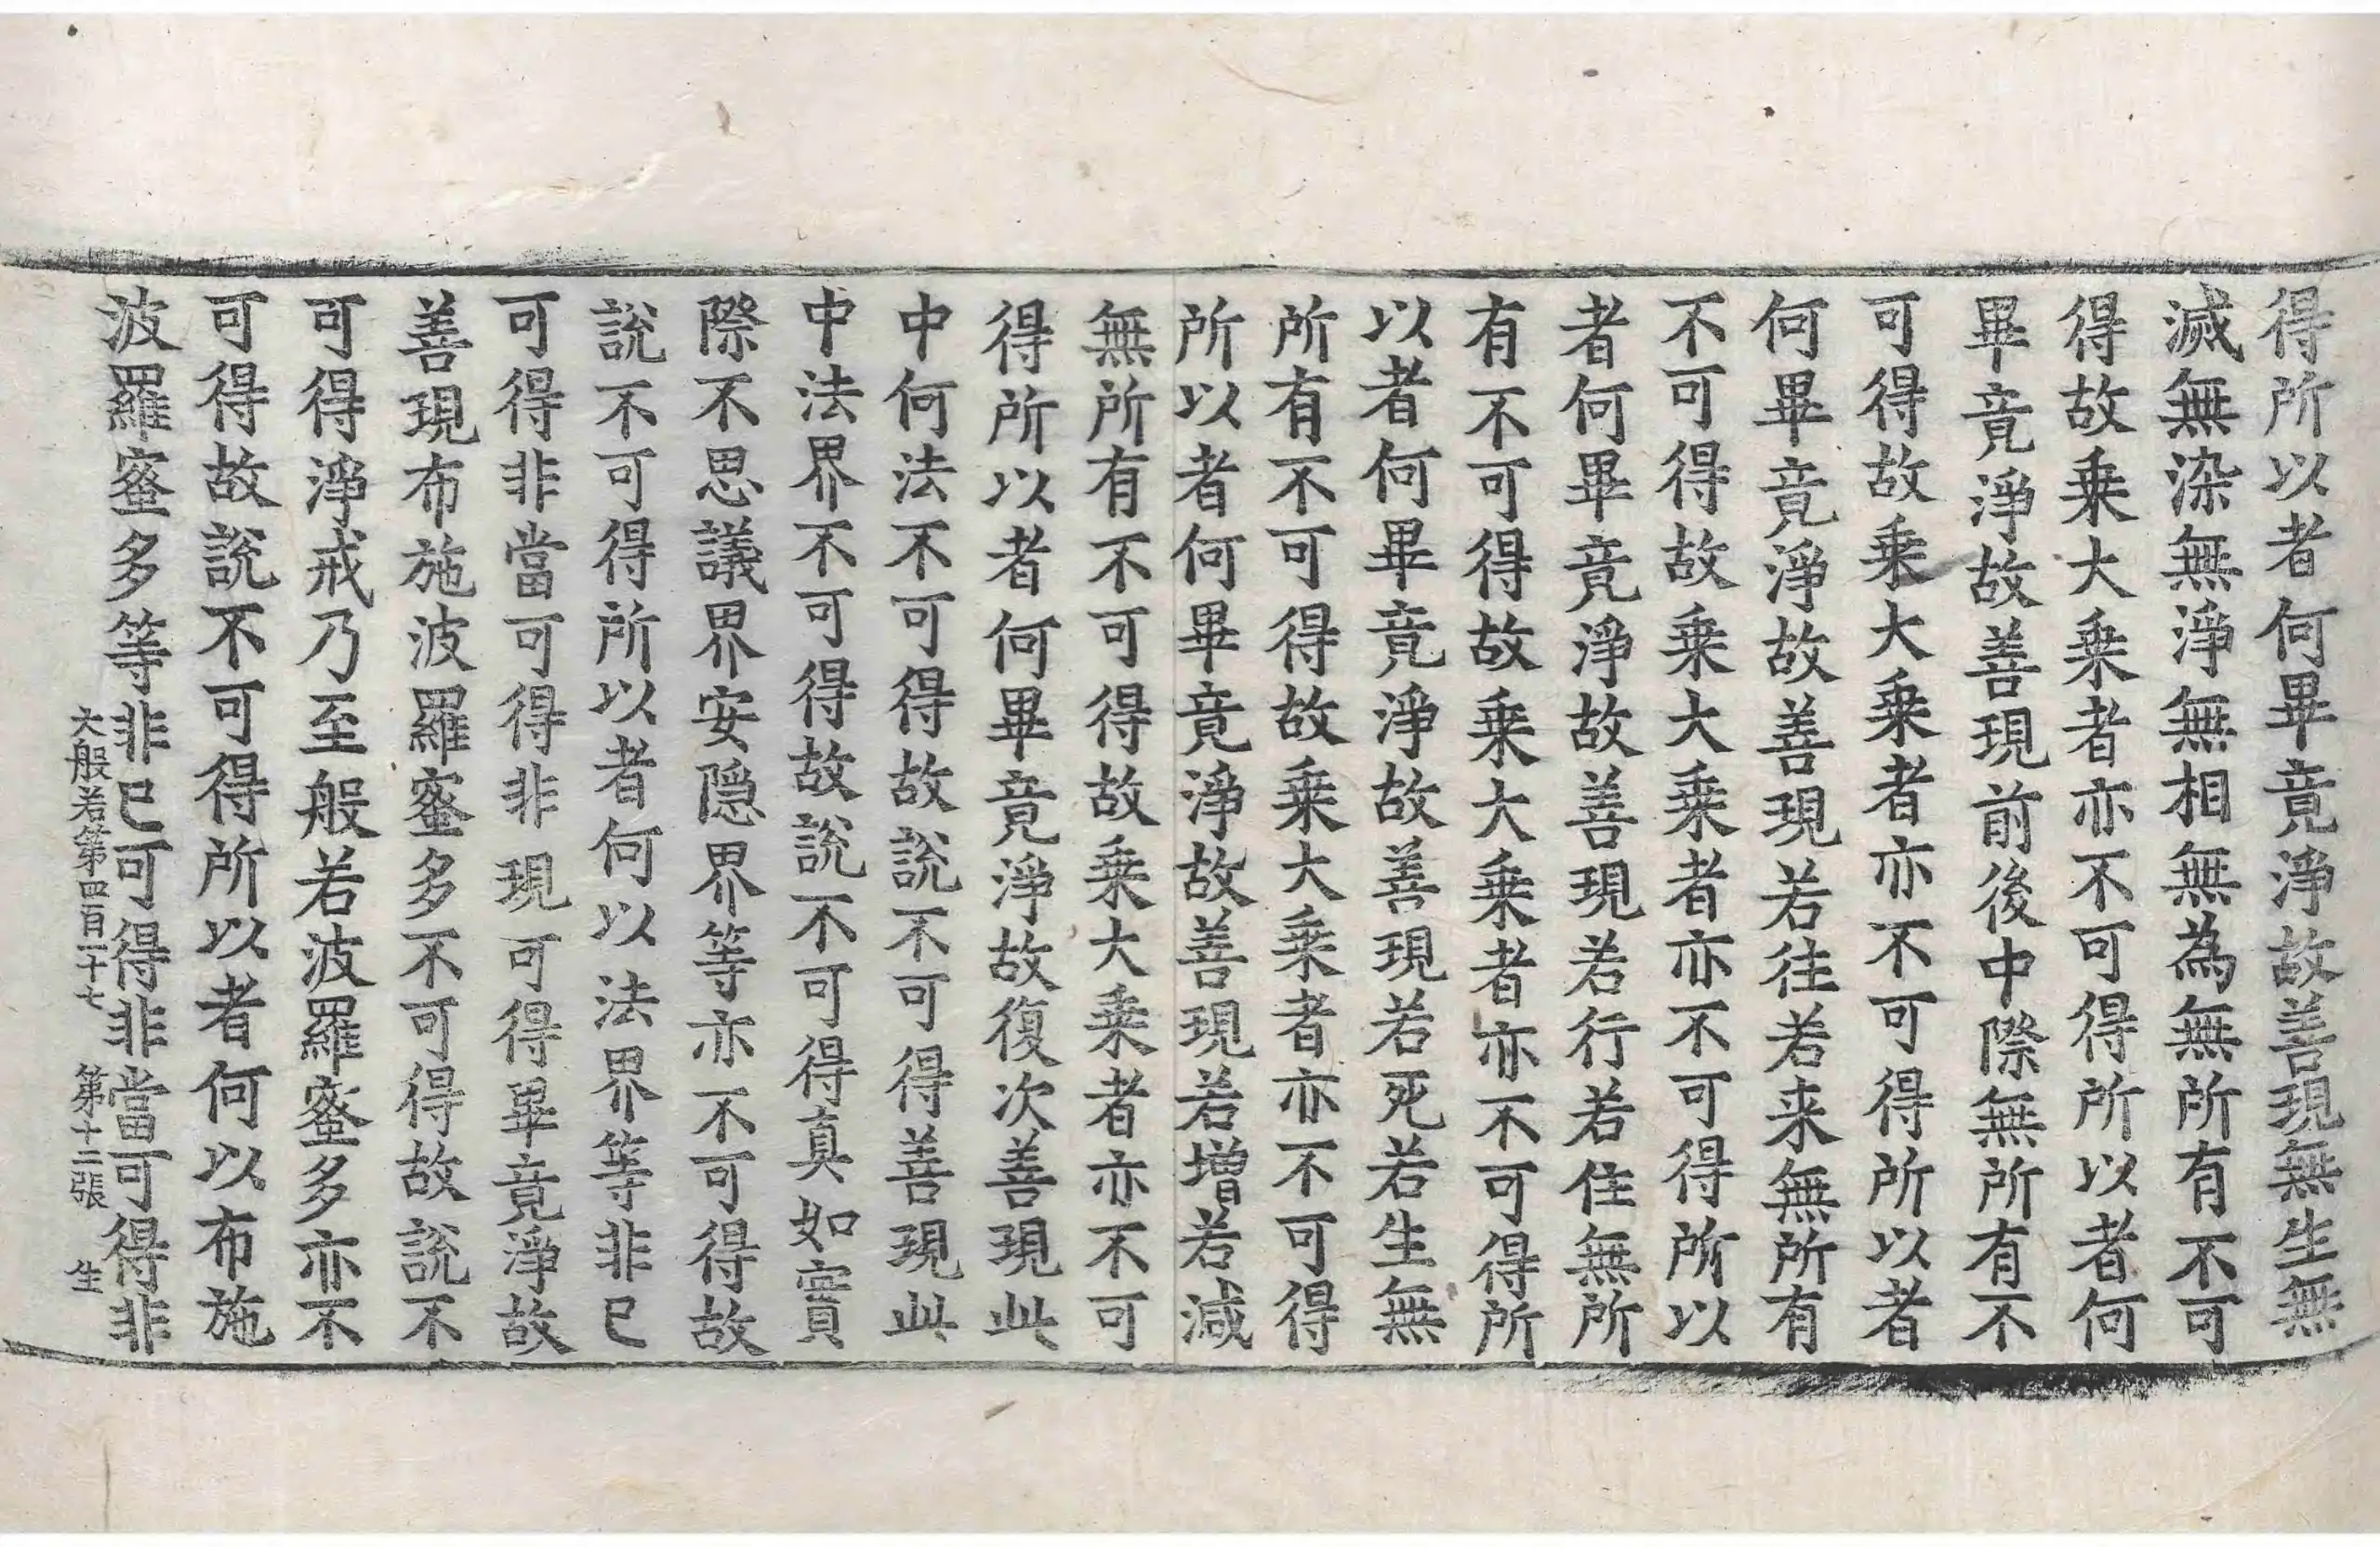 得所以者何畢竟淨故善現無生無
滅無染無淨無相無為無所有不可
得故乗大乗者亦不可得所以者何
畢竟淨故善現前後中際無所有不
可得故乗大乗者亦不可得所以者
何畢竟淨故善現若往若来無所有
不可得故乗大乗者亦不可得所以
者何畢竟淨故善現若行若住無所
有不可得故乗大乗者亦不可得所
以者何畢竟淨故善現若死若生無
所有不可得故乗大乗者亦不可得
所以者何畢竟淨故善現若增若減
無所有不可得故乗大乗者亦不可
得所以者何畢竟淨故復次善現此
中何法不可得故說不可得善現此
中法界不可得故說不可得真如實
際不思議界安隱界等亦不可得故
說不可得所以者何以法界等非已
可得非當可得非現可得畢竟淨故
善現布施波羅蜜多不可得故說不
可得淨戒乃至般若波羅蜜多亦不
可得故說不可得所以者何以布施
波羅蜜多等非已可得非當可得非
大般若第四百一十七 第十二張 生